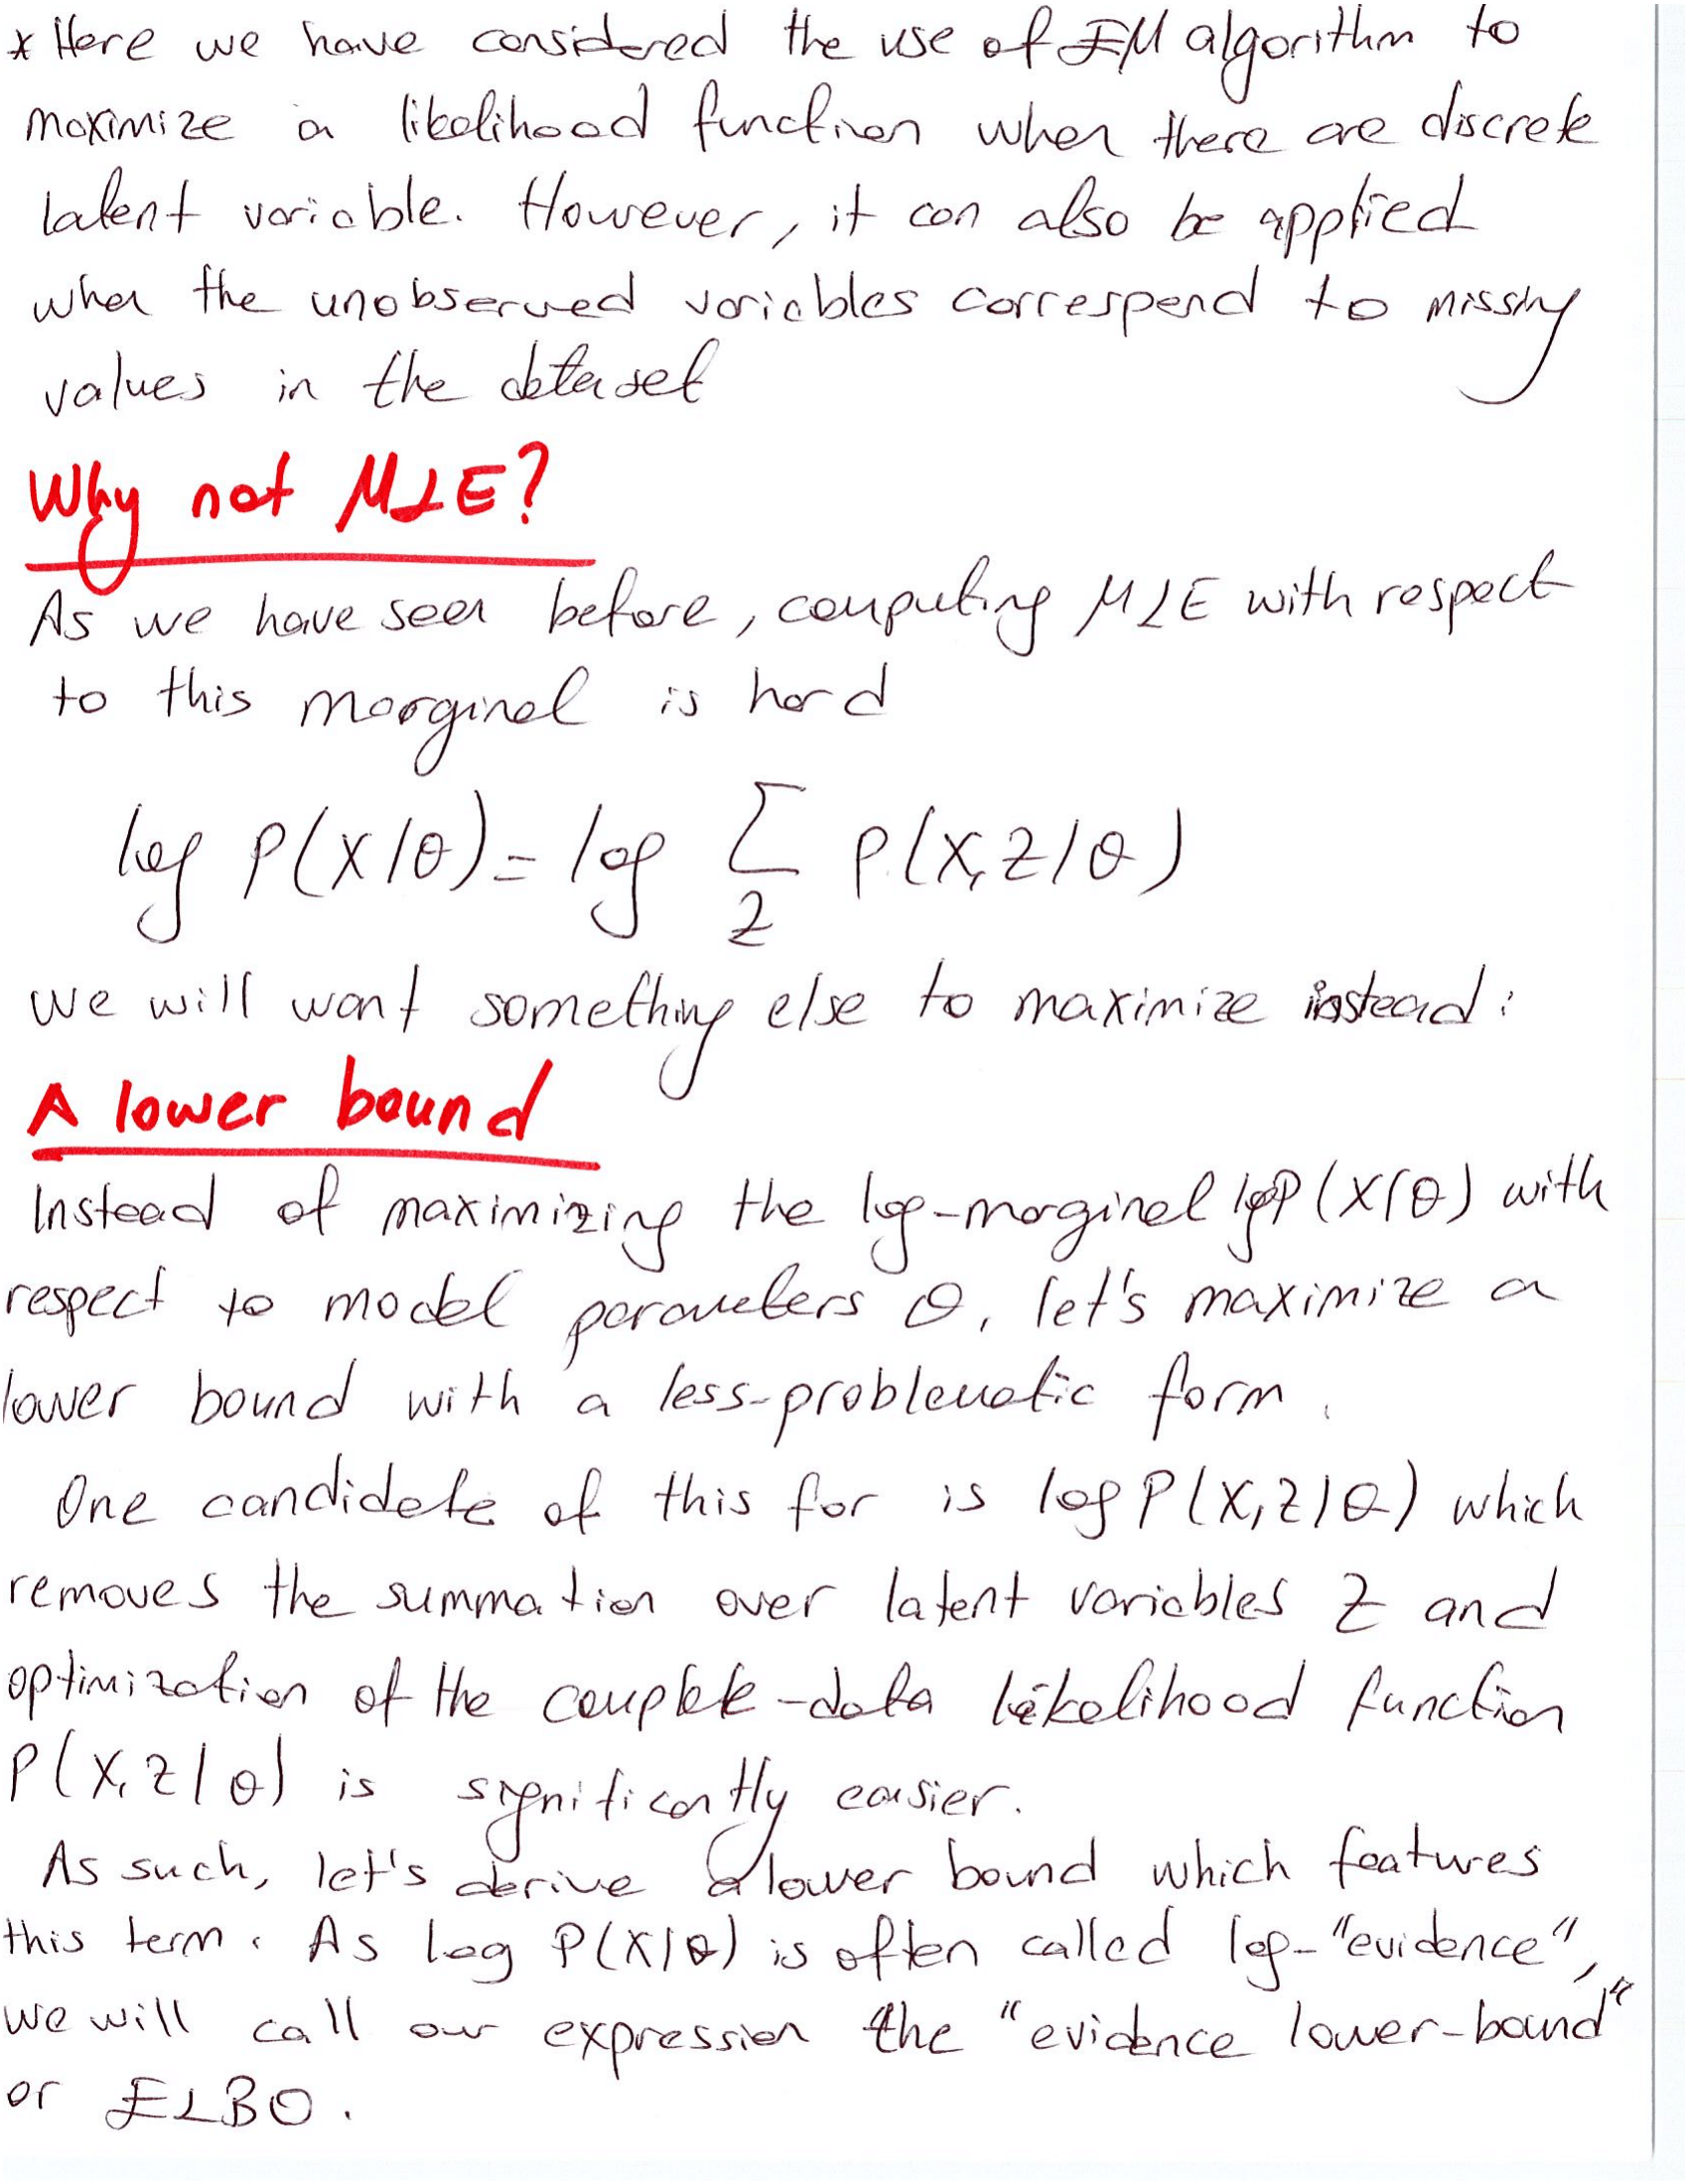 * Here we have considered the use of EM algorithm to
maximize a likelihood function when there are discrete
latent variable. However, it can also be applied
when the unobserved variables correspond to missing
values in the dataset
Why not MLE?
As we have seen before, computing MLE with respect
to this marginal is hard
log P(X|θ) = log Σ_Z P(X,Z|θ)
we will want something else to maximize instead:
A lower bound
Instead of maximizing the log-marginal log P(X|θ) with
respect to model parameters θ, let's maximize a
lower bound with a less-problematic form.
One candidate of this for is log P(X,Z|θ) which
removes the summation over latent variables Z and
optimization of the complete-data likelihood function
P(X,Z|θ) is significantly easier.
As such, let's derive a lower bound which features
this term. As log P(X|θ) is often called log-"evidence",
we will call our expression the "evidence lower-bound"
or ELBO.